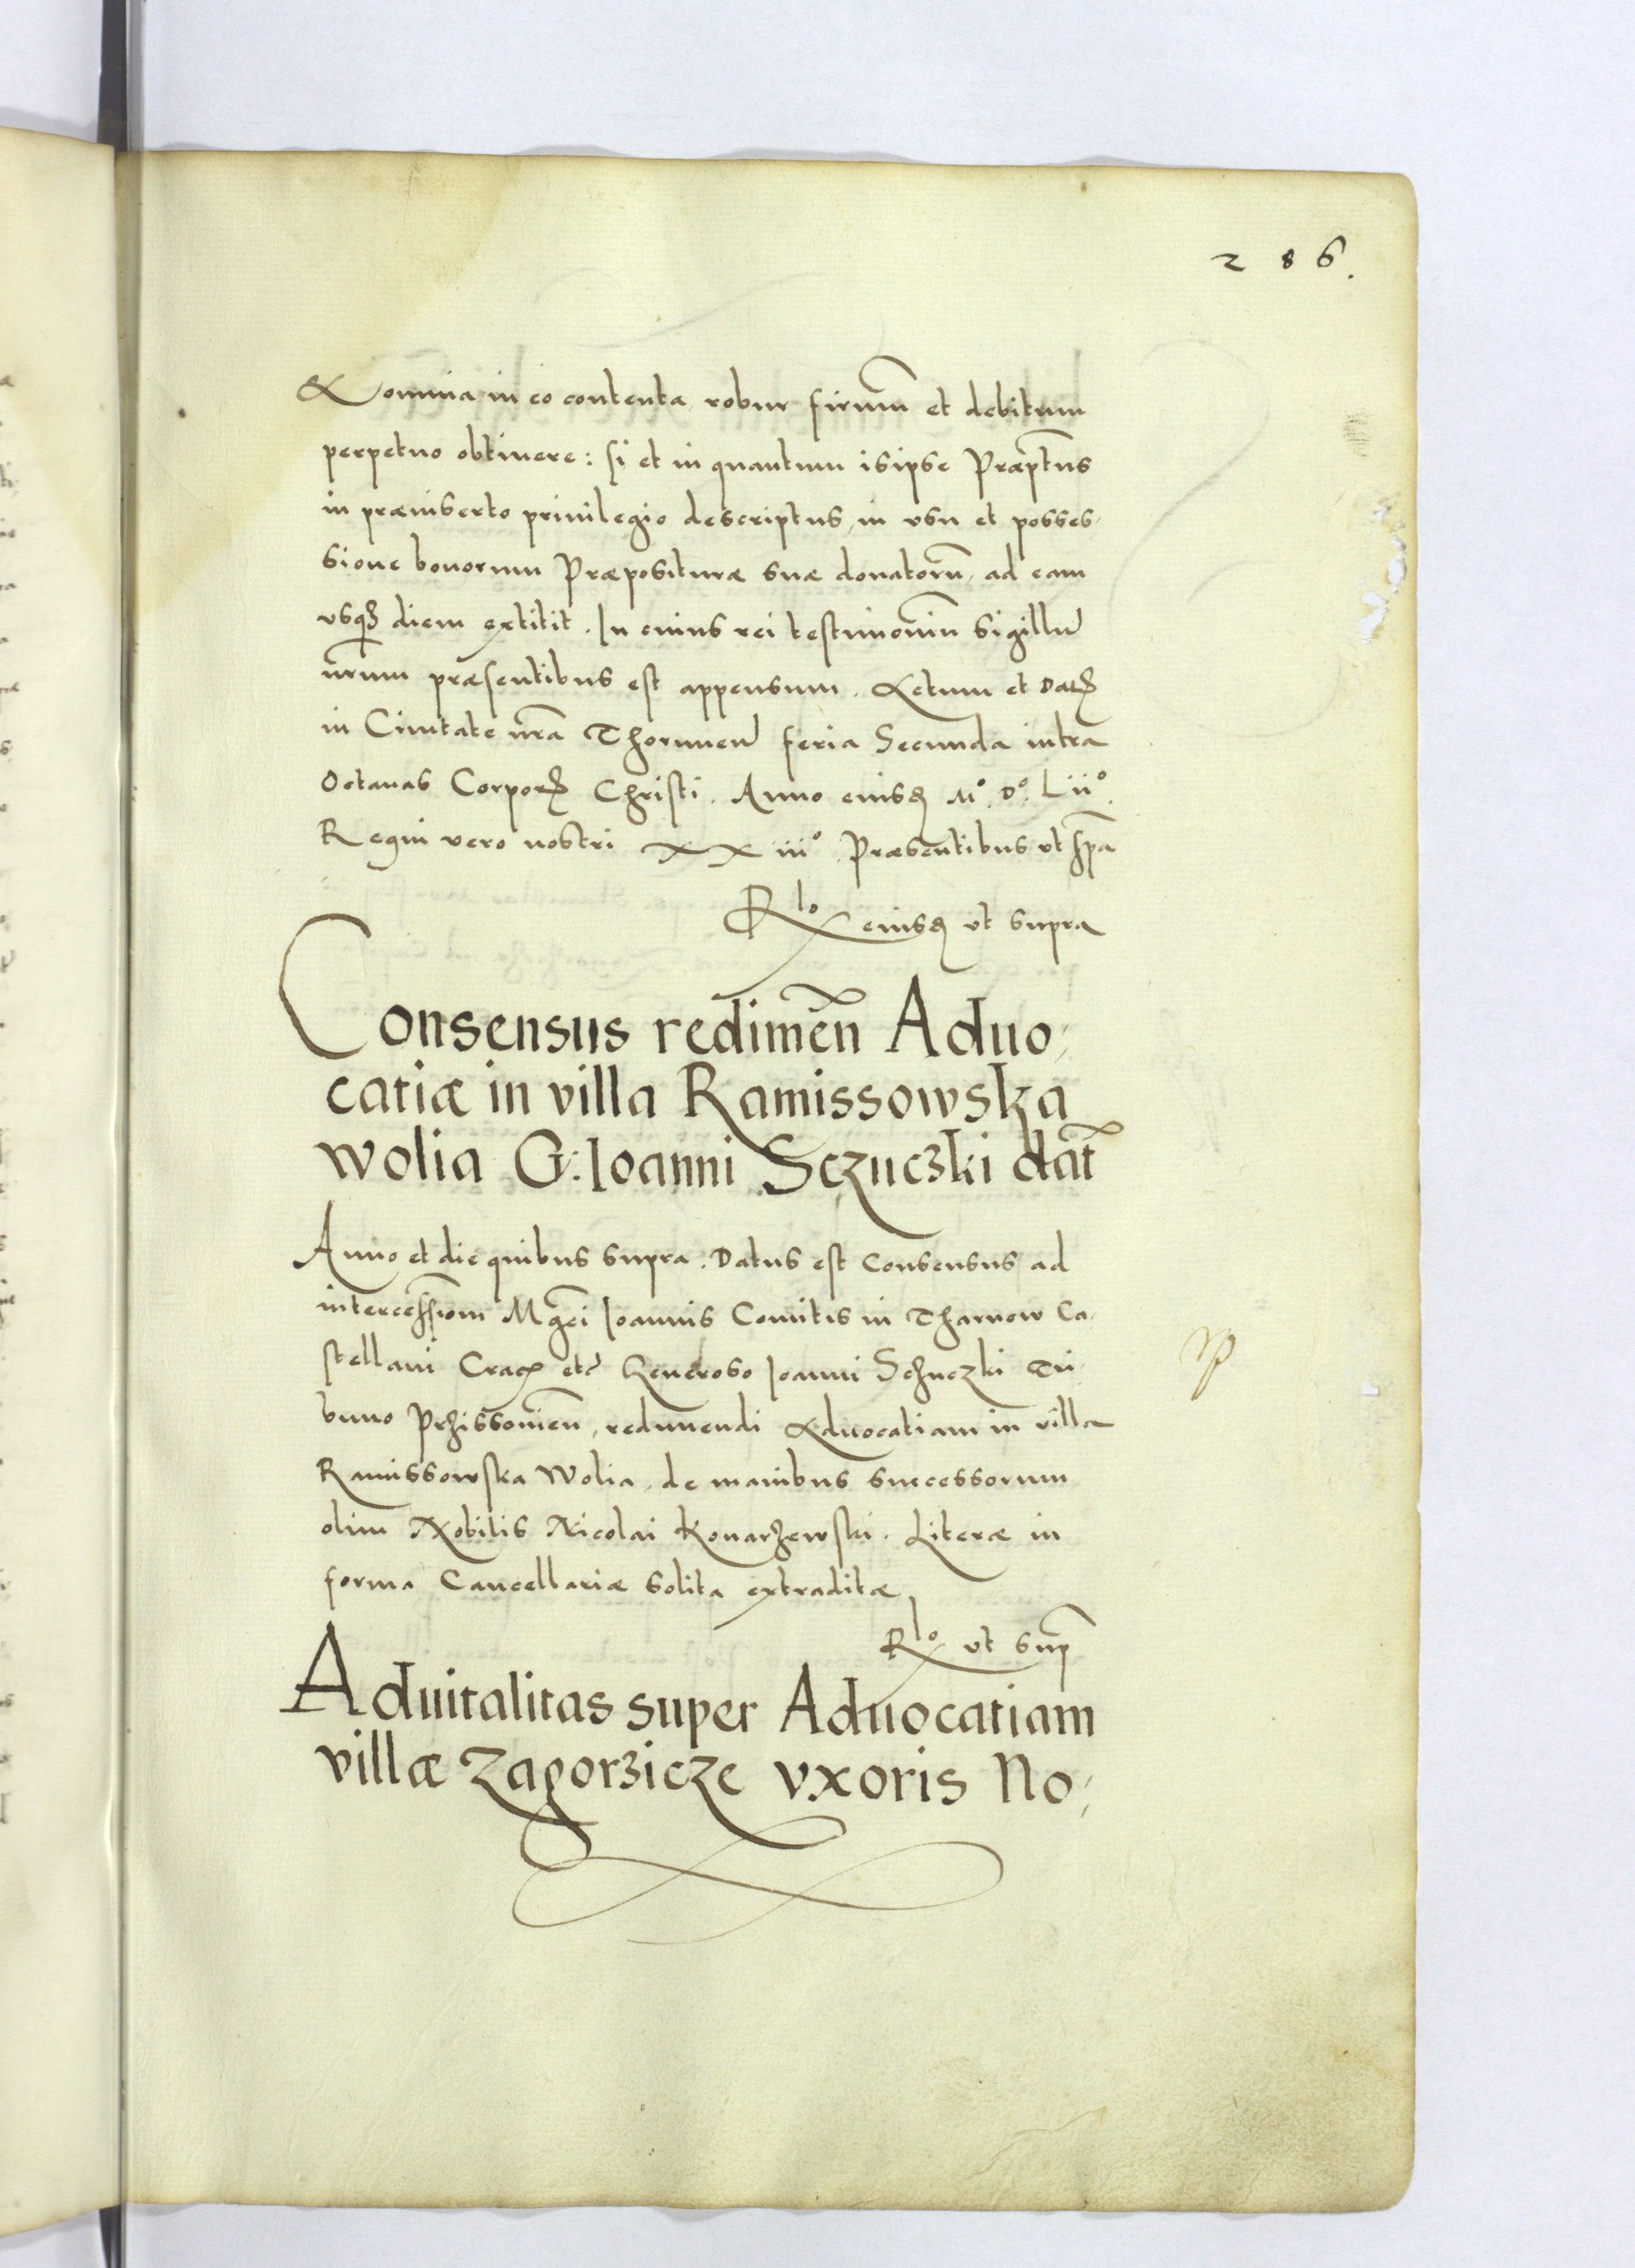 286.
& omnia in eo contenta, robur firmũ et debitum
perpetuo obtinere: si et in quantum is ipse Præptus
in præinserto priuilegio descriptus, in vsu et posses-
sione bonorum Præpositurae suæ donatorũ, ad eam
vsq3 diem extitit. In cuius rei testimoniũ Sigillũ
nrum præsentibus est appensum. Actum et Datꝭ
in Ciuitate nrã Thorunień feria Secunda intra
Octauas Corporꝭ Christi. Anno eiusd M° D° Lii°.
Regni vero nostri XXiii° Præsentibus vt spã
Rlo eiusd vt supra
Consensus redimeñ Aduo,
catiæ in villa Ramissowska
wolia G: Ioanni Sczuczki dat
Anno et die quibus supra. Datus est Consensus ad
intercessionm Mgci Ioannis Comitis in Tharnow Ca-
stellani Crac etc Generoso Ioanni Sczuczki Tri-
buno Przissouień, redimendi Aduocatiam in villa
Ramissowska Wolia, de manibus successorum
olim Nobilis Nicolai Konarzewski. Literæ in
forma Cancellariæ solita extraditæ
Rlo vt sup
Aduitalitas super Aduocatiam
villæ Zagorzicze vxoris No,